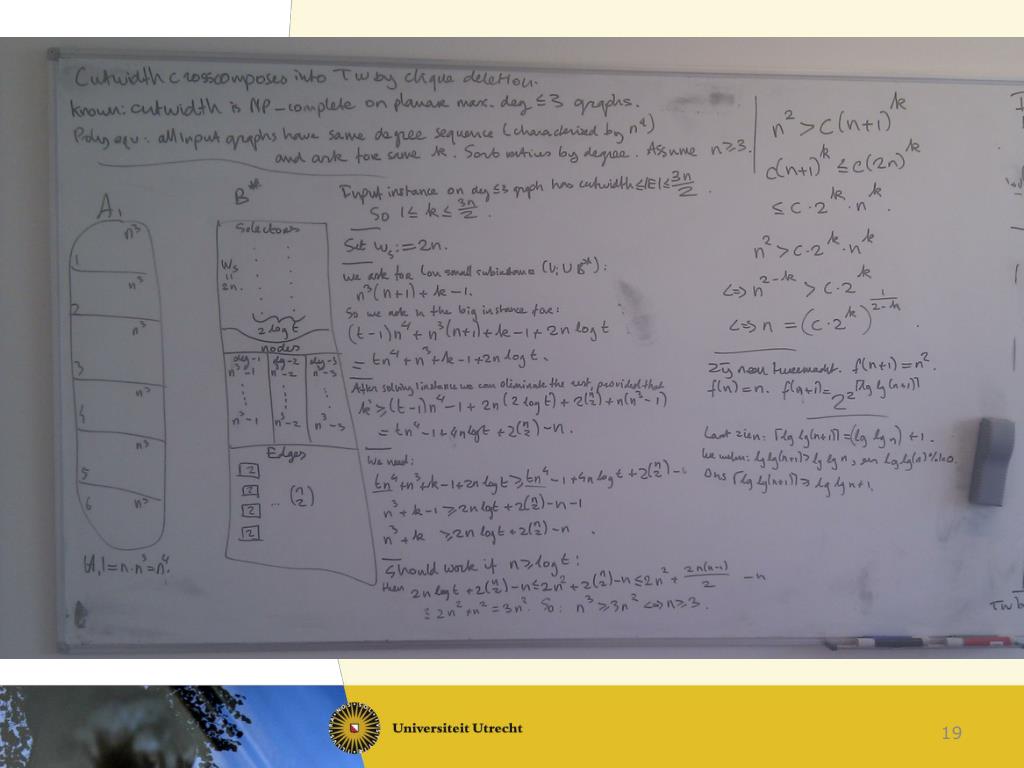 Cutwidth crosscomposes into TW by clique deletion.
Known: cutwidth is NP-complete on planar max. deg ≤ 3 graphs.
Poly equ: all input graphs have same degree sequence (characterized by n⁴)
and ask for same k. Sort vertices by degree. Assume n≥3.
A₁
n³
1
n³
2
n³
3
n³
4
n³
5
n³
6
|A₁|=n·n³=n⁴.
B*
Selectors
Ws
=
2n.
2 log t
nodes
deg-1 deg-2 deg-3
n³-1 n³-2 n³-3
n³-1 n³-2 n³-3
Edges
2
2
2
2
... (n 2)
Input instance on deg ≤3 graph has cutwidth ≤|E| ≤ 3n/2.
So 1 ≤ k ≤ 3n/2.
Set Ws := 2n.
We ask for small subinstance (Vi ∪ B*):
n³(n+1)+k-1.
So we ask in the big instance for:
(t-1)n⁴+n³(n+1)+k-1+2n log t
= tn⁴+n³+k-1+2n log t.
After solving 1 instance we can eliminate the rest, provided that
k' ≥ (t-1)n⁴-1+2n(2 log t)+2(n 2)+n(n³-1)
= tn⁴-1+4n log t+2(n 2)-n.
We need:
tn⁴+n³+k-1+2n log t ≥ tn⁴-1+4n log t+2(n 2)-
n³+k-1 ≥ 2n log t+2(n 2)-n-1
n³+k ≥ 2n log t+2(n 2)-n.
Should work if n ≥ log t:
then 2n log t+2(n 2)-n ≤ 2n²+2(n 2)-n ≤ 2n²+ 2n(n-1)/2 -n
≤ 2n²+n² = 3n². So: n³ ≥ 3n² ⇔ n≥3.
n² > c(n+1)^k
c(n+1)^k ≤ c(2n)^k
≤ c·2^k·n^k.
n² > c·2^k·n^k
⇔ n^(2-k) > c·2^k
⇔ n = (c·2^k)^(1/(2-k)).
Zij n een tweemacht. f(n+1)=n².
f(n)=n. f(n+1)=2^2^⌈lg lg(n+1)⌉
Laat zien: ⌈lg lg(n+1)⌉=(lg lg n)+1.
We weten: lg lg(n+1) > lg lg n, en lg lg(n)%1=0.
Dus ⌈lg lg(n+1)⌉ ≥ lg lg n+1.
Universiteit Utrecht
19